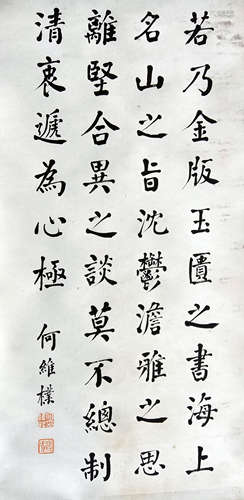 若乃金版玉匱之書海上
名山之旨沈鬱澹雅之思
離堅合異之談莫不總制
清衷遞為心極
何維樸